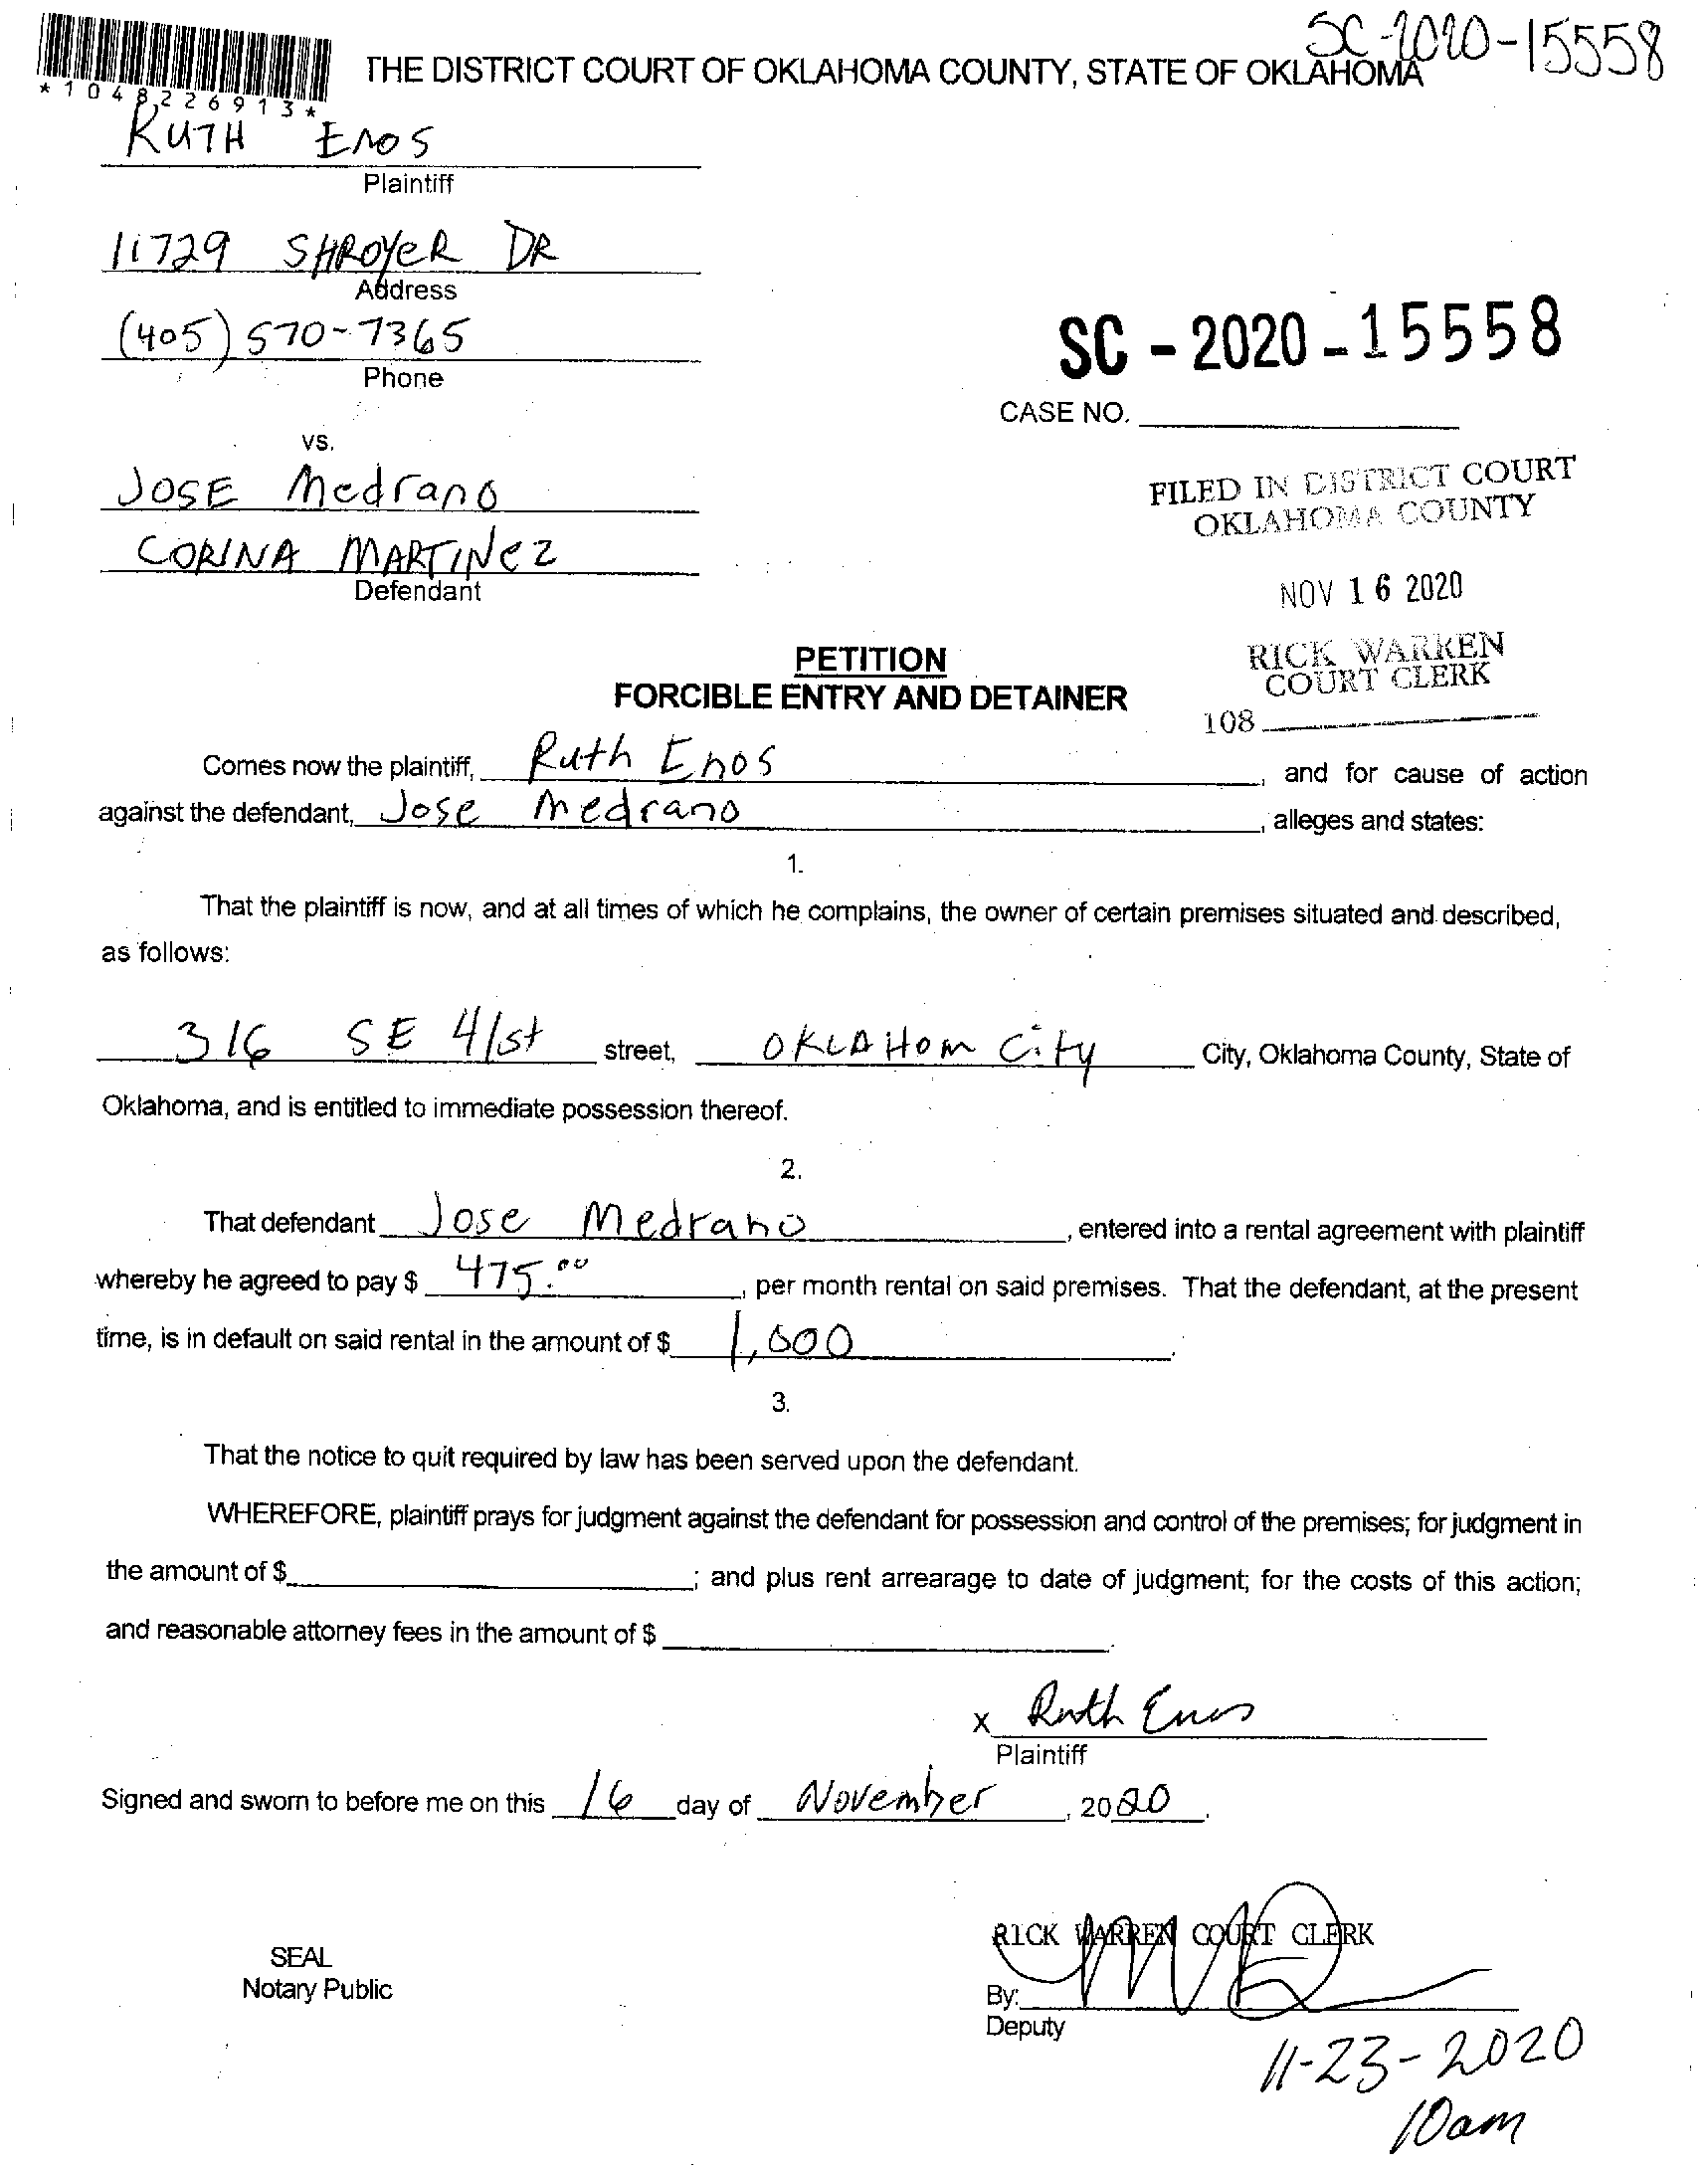 SC-2020-15558
THE DISTRICT COURT OF OKLAHOMA COUNTY, STATE OF OKLAHOMA
*1048226913*
RUTH ENOS
Plaintiff
11729 SHROYER DR
Address
(405) 570-7365
Phone
SC-2020-15558
CASE NO.
vs.
JOSE Medrano
CORINA MARTINez
Defendant
FILED IN DISTRICT COURT
OKLAHOMA COUNTY
NOV 16 2020
RICK WARREN
COURT CLERK
108
PETITION
FORCIBLE ENTRY AND DETAINER
Comes now the plaintiff, Ruth Enos, and for cause of action
against the defendant, Jose Medrano, alleges and states:
1.
That the plaintiff is now, and at all times of which he complains, the owner of certain premises situated and described,
as follows:
316 SE 41st street, OKLAHOM City City, Oklahoma County, State of
Oklahoma, and is entitled to immediate possession thereof.
2.
That defendant Jose Medrano, entered into a rental agreement with plaintiff
whereby he agreed to pay $ 475.00, per month rental on said premises. That the defendant, at the present
time, is in default on said rental in the amount of $ 1,000.
3.
That the notice to quit required by law has been served upon the defendant.
WHEREFORE, plaintiff prays for judgment against the defendant for possession and control of the premises; for judgment in
the amount of $ ; and plus rent arrearage to date of judgment; for the costs of this action;
and reasonable attorney fees in the amount of $ .
x Ruth Enos
Plaintiff
Signed and sworn to before me on this 16 day of November, 2020.
RICK WARREN COURT CLERK
SEAL
Notary Public
By:
Deputy
11-23-2020
10am